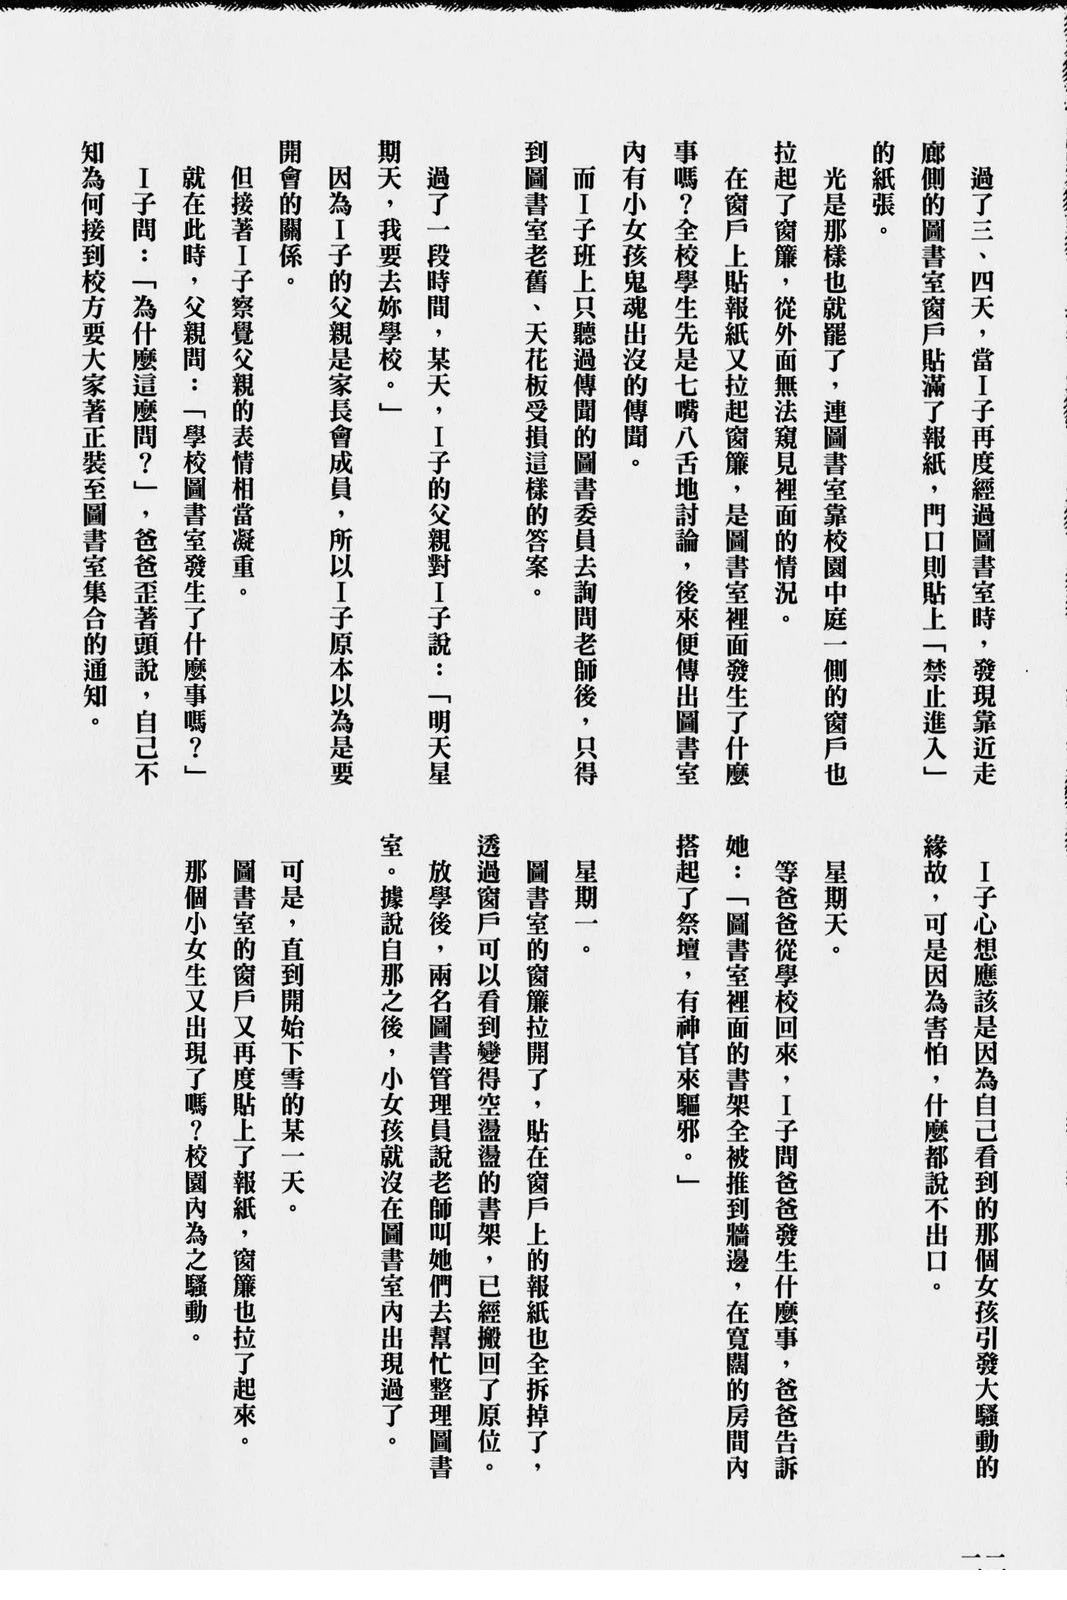 過了三、四天，當Ｉ子再度經過圖書室時，發現靠近走
廊側的圖書室窗戶貼滿了報紙，門口則貼上「禁止進入」
的紙張。
光是那樣也就罷了，連圖書室靠校園中庭一側的窗戶也
拉起了窗簾，從外面無法窺見裡面的情況。
在窗戶上貼報紙又拉起窗簾，是圖書室裡面發生了什麼
事嗎？全校學生先是七嘴八舌地討論，後來便傳出圖書室
內有小女孩鬼魂出沒的傳聞。
而Ｉ子班上只聽過傳聞的圖書委員去詢問老師後，只得
到圖書室老舊、天花板受損這樣的答案。
過了一段時間，某天，Ｉ子的父親對Ｉ子說：「明天星
期天，我要去妳學校。」
因為Ｉ子的父親是家長會成員，所以Ｉ子原本以為是要
開會的關係。
但接著Ｉ子察覺父親的表情相當凝重。
就在此時，父親問：「學校圖書室發生了什麼事嗎？」
Ｉ子問：「為什麼這麼問？」，爸爸歪著頭說，自己不
知為何接到校方要大家著正裝至圖書室集合的通知。
Ｉ子心想應該是因為自己看到的那個女孩引發大騷動的
緣故，可是因為害怕，什麼都說不出口。
星期天。
等爸爸從學校回來，Ｉ子問爸爸發生什麼事，爸爸告訴
她：「圖書室裡面的書架全被推到牆邊，在寬闊的房間內
搭起了祭壇，有神官來驅邪。」
星期一。
圖書室的窗簾拉開了，貼在窗戶上的報紙也全拆掉了，
透過窗戶可以看到變得空盪盪的書架，已經搬回了原位。
放學後，兩名圖書管理員說老師叫她們去幫忙整理圖書
室。據說自那之後，小女孩就沒在圖書室內出現過了。
可是，直到開始下雪的某一天。
圖書室的窗戶又再度貼上了報紙，窗簾也拉了起來。
那個小女生又出現了嗎？校園內為之騷動。